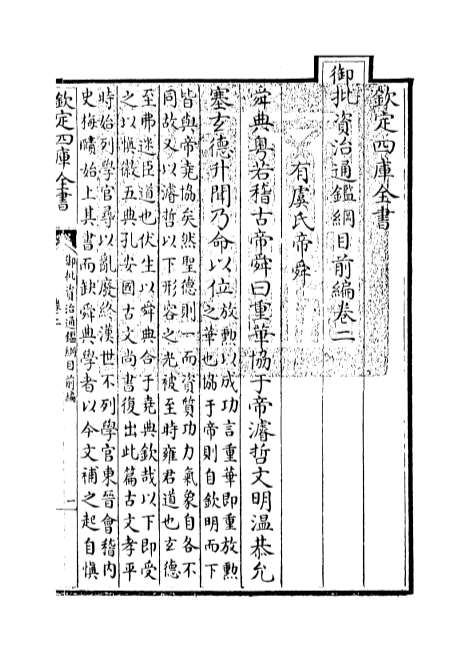 欽定四庫全書
御批資治通鑑綱目前編卷二
有虞氏帝舜
舜典粤若稽古帝舜曰重華協于帝濬哲文明温恭允
塞玄德升聞乃命以位
放勳以成功言重華即重放勲
之華也協于帝則自欽明而下
皆與帝堯協矣然聖德則一而資質功力氣象自各不
同故又以濬哲以下形容之光被至時雍君道也玄德
至弗迷臣道也伏生以舜典合于堯典欽哉以下即受
之以慎徽五典孔安國古文尚書復出此篇古文孝平
時始列學官尋以亂廢終漢世不列學官東晉會稽内
史梅賾始上其書而缺舜典學者以今文補之起自慎
欽定四庫全書
御批資治通鑑綱目前編
卷二
一